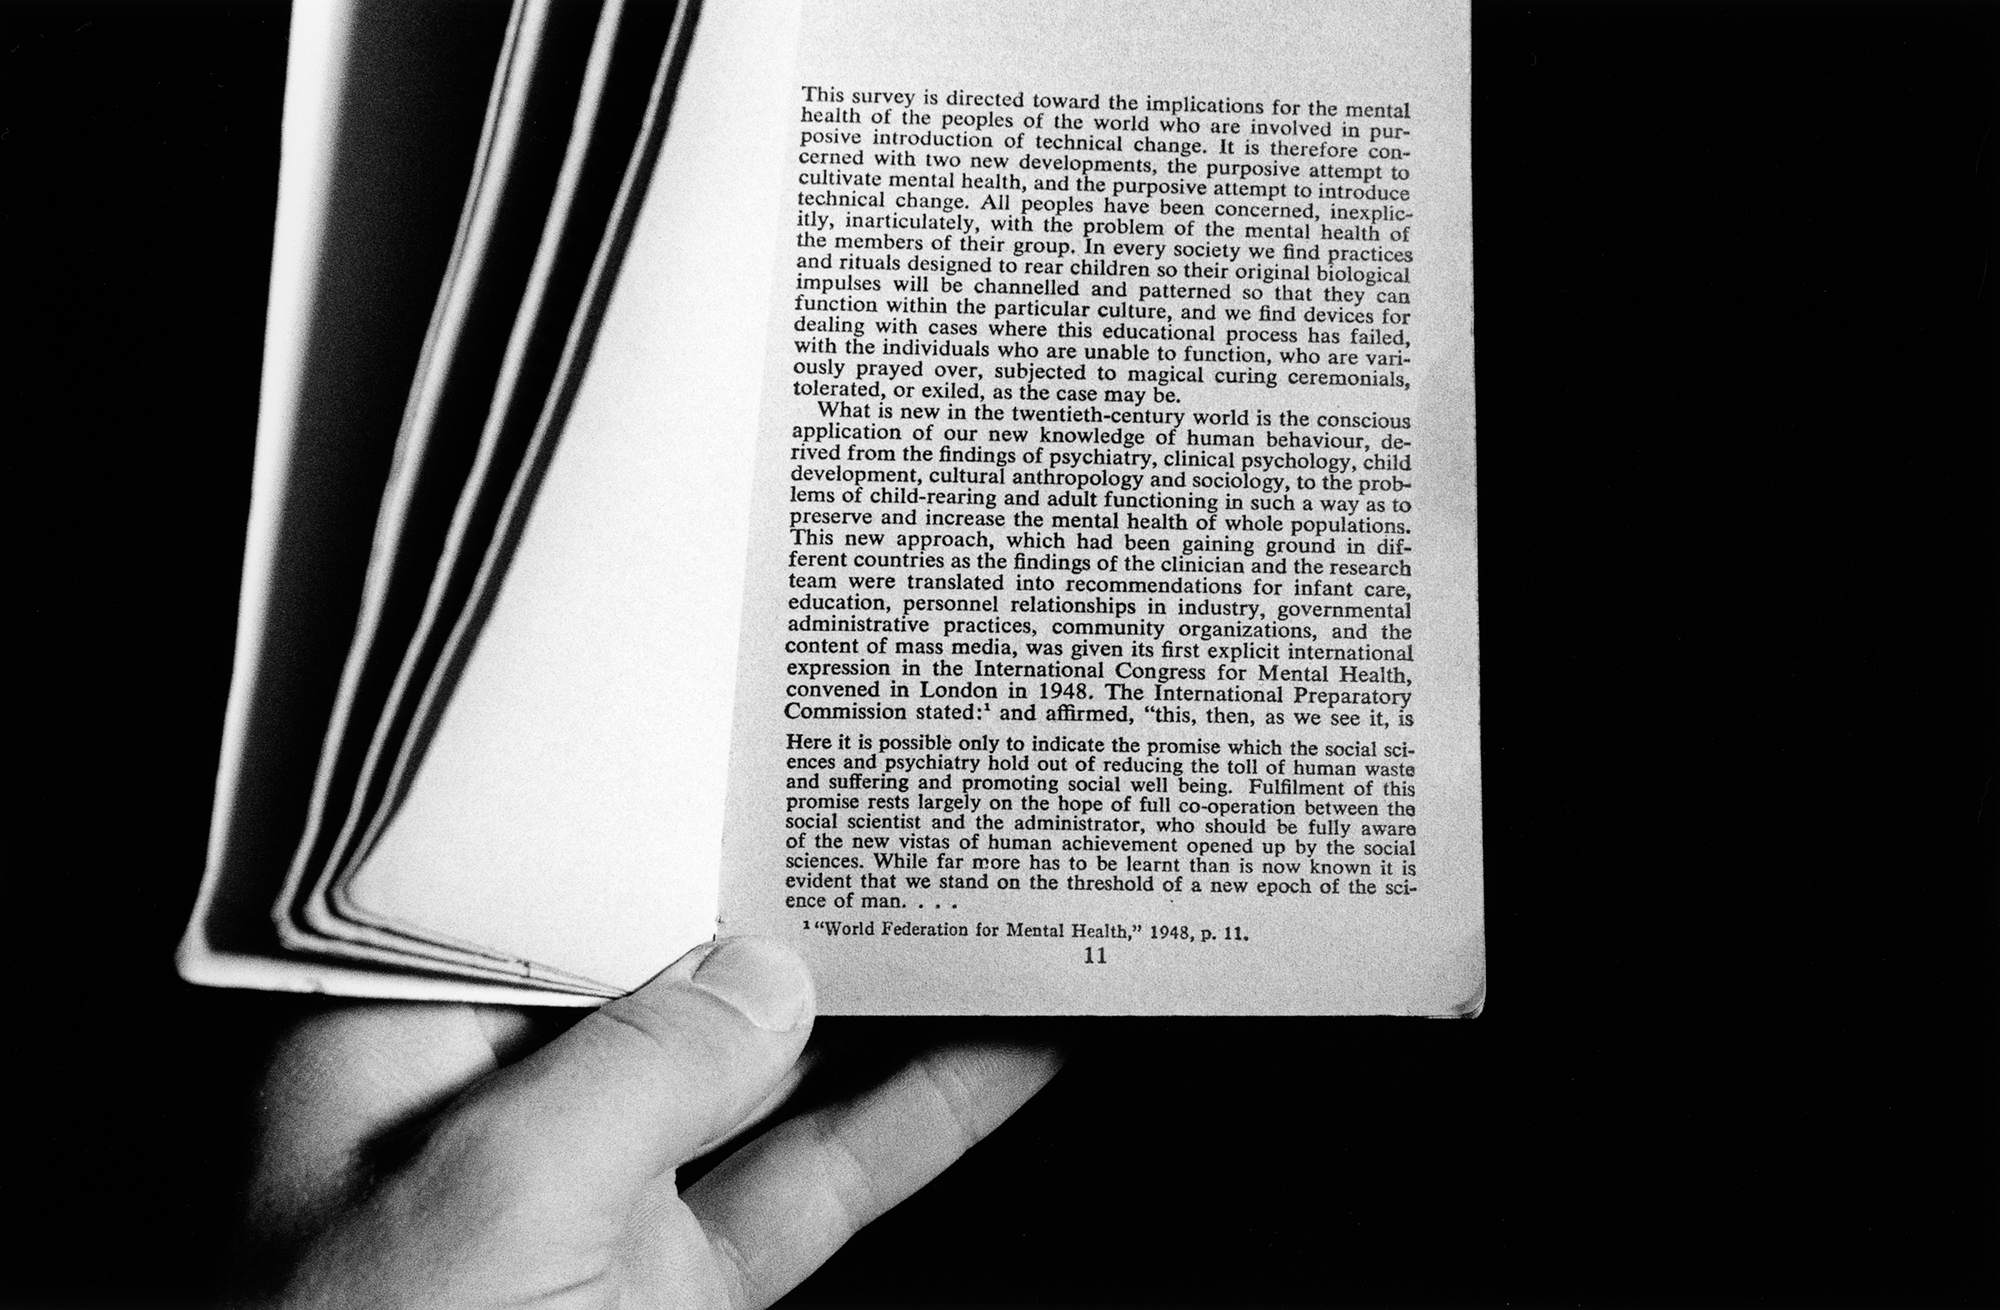 This survey is directed toward the implications for the mental
health of the peoples of the world who are involved in pur-
posive introduction of technical change. It is therefore con-
cerned with two new developments, the purposive attempt to
cultivate mental health, and the purposive attempt to introduce
technical change. All peoples have been concerned, inexplic-
itly, inarticulately, with the problem of the mental health of
the members of their group. In every society we find practices
and rituals designed to rear children so their original biological
impulses will be channelled and patterned so that they can
function within the particular culture, and we find devices for
dealing with cases where this educational process has failed,
with the individuals who are unable to function, who are vari-
ously prayed over, subjected to magical curing ceremonials,
tolerated, or exiled, as the case may be.
What is new in the twentieth-century world is the conscious
application of our new knowledge of human behaviour, de-
rived from the findings of psychiatry, clinical psychology, child
development, cultural anthropology and sociology, to the prob-
lems of child-rearing and adult functioning in such a way as to
preserve and increase the mental health of whole populations.
This new approach, which had been gaining ground in dif-
ferent countries as the findings of the clinician and the research
team were translated into recommendations for infant care,
education, personnel relationships in industry, governmental
administrative practices, community organizations, and the
content of mass media, was given its first explicit international
expression in the International Congress for Mental Health,
convened in London in 1948. The International Preparatory
Commission stated:¹ and affirmed, “this, then, as we see it, is
Here it is possible only to indicate the promise which the social sci-
ences and psychiatry hold out of reducing the toll of human waste
and suffering and promoting social well being. Fulfilment of this
promise rests largely on the hope of full co-operation between the
social scientist and the administrator, who should be fully aware
of the new vistas of human achievement opened up by the social
sciences. While far more has to be learnt than is now known it is
evident that we stand on the threshold of a new epoch of the sci-
ence of man. . . .
¹ “World Federation for Mental Health,” 1948, p. 11.
11